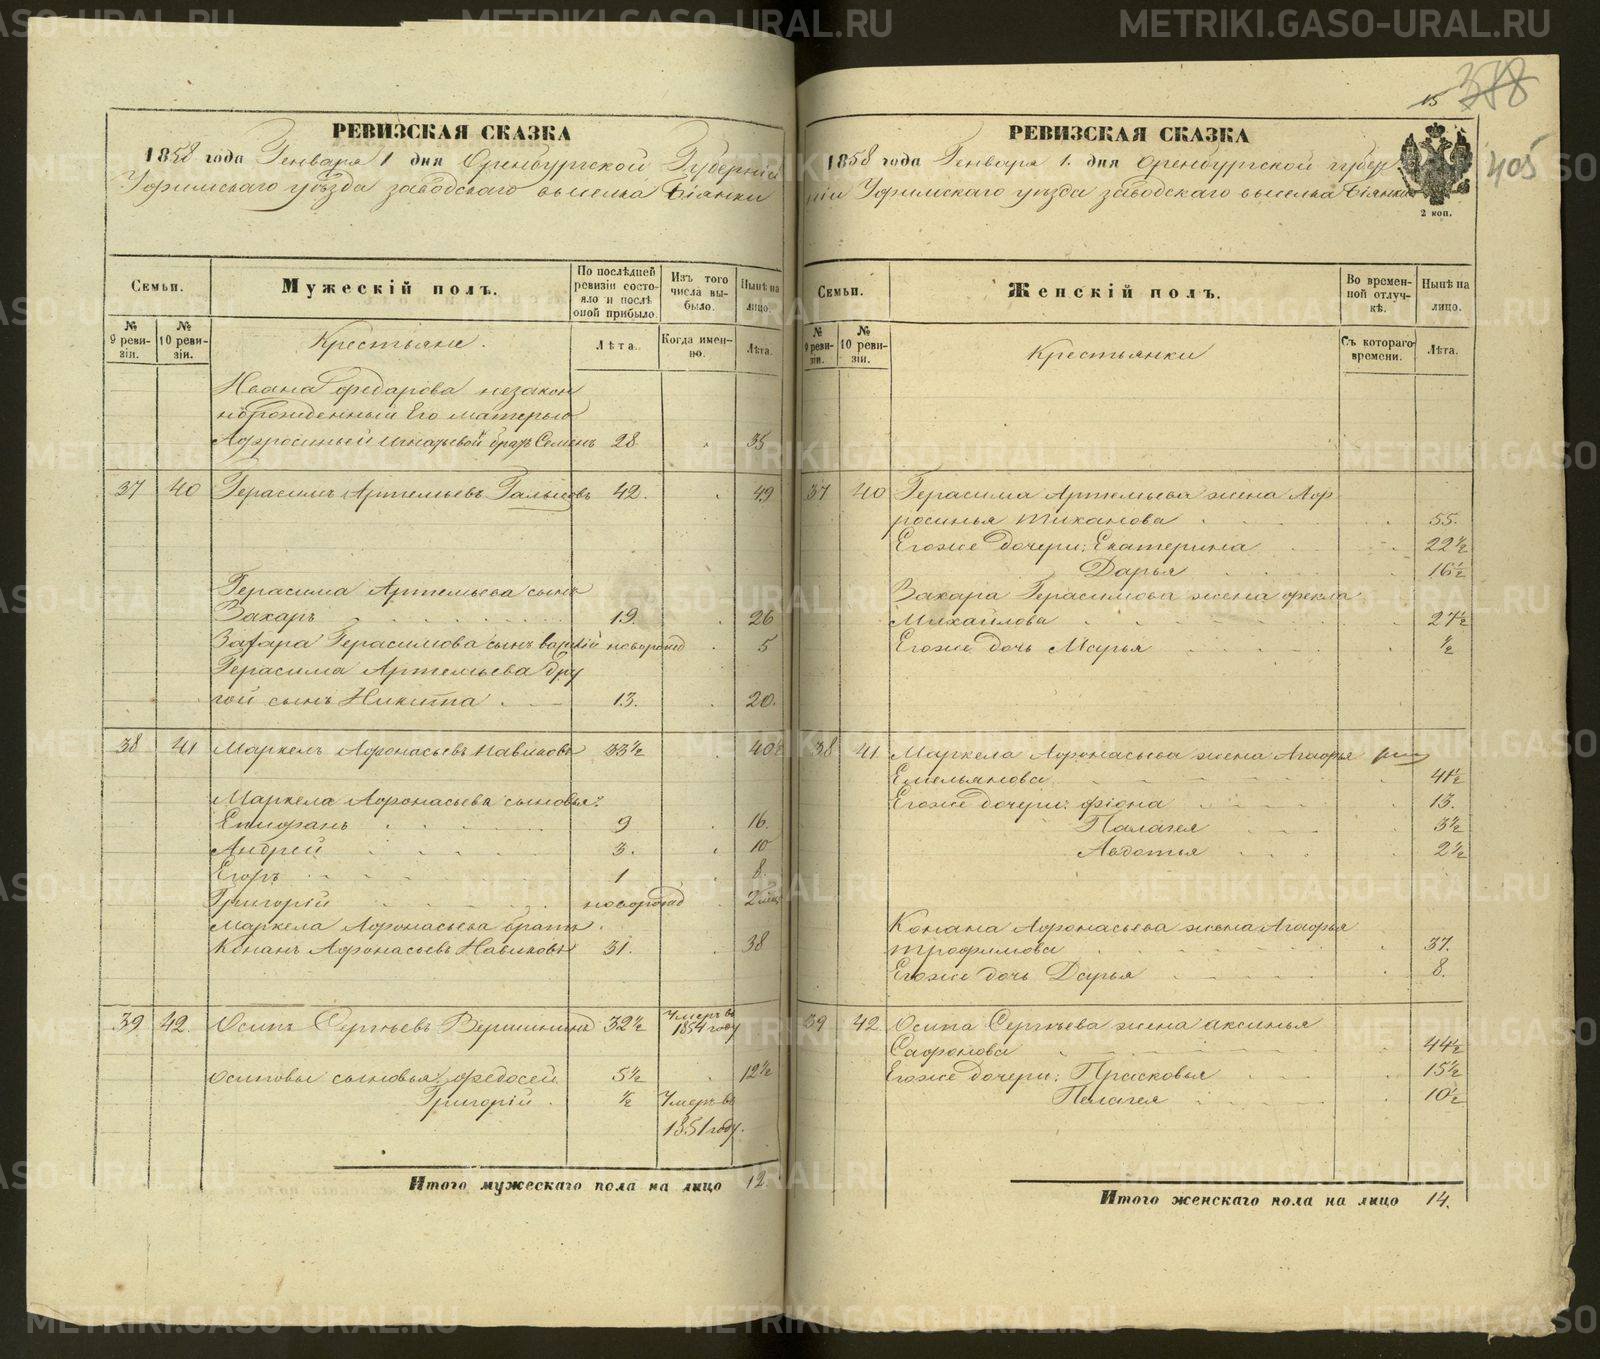 РЕВИЗСКАЯ СКАЗКА
1858 года Генваря 1 дня Оренбургской Губернiи
Уфимскаго уѣзда заводскаго выселка Бiянки
Семьи.
Мужескiй полъ.
По послѣдней ревизiи состояло и послѣ оной прибыло.
Изъ того числа выбыло.
Нынѣ на лицо.
№ 9 ревизiи.
№ 10 ревизiи.
Крестьяне.
Лѣта.
Когда именно.
Лѣта.
Ивана Федарова незакон
норожденный Его матерью
Афросиньей Игнатьевой братъ Семенъ 28. 35
37 40 Герасимъ Артемьевъ 42. 49
Герасима Артемьева сынъ
Захаръ 19. 26
Захара Герасимова сынъ новорожд 5
Герасима Артемьева дру
гой сынъ Никита 13. 20.
38 41 Маркелъ Афонасьевъ Новиковъ 33½ 40½
Маркела Афонасьева сыновья:
Епифанъ 9 16.
Андрей 3. 10
Егоръ 1 8.
Григорiй новорожд 2
Маркела Афонасьева братъ
Конанъ Афонасьевъ Новиковъ 31. 38
39 42. Осипъ Сергѣевъ Вершининъ 32½ Умеръ въ 1854 году
Осиповы сыновья: Федосей 5½ 12½
Григорiй ½ Умеръ въ
1851 году.
Итого мужескаго пола на лицо 12.
15 378
405
РЕВИЗСКАЯ СКАЗКА
1858 года Генваря 1. дня Оренбургской губер
нiи Уфимскаго уѣзда заводскаго выселка Бiянки
2 коп.
Семьи.
Женскiй полъ.
Во временной отлучкѣ.
Нынѣ на лицо.
№ 9 ревизiи.
№ 10 ревизiи.
Крестьянки
Съ котораго времени.
Лѣта.
37 40 Герасима Артемьева жена Аф
росинья Тиханова 55.
Егоже дочери: Екатерина 22½
Дарья 16½
Захара Герасимова жена Фекла
Михайлова 27½
Егоже дочь Марья ½
38 41 Маркела Афонасьева жена Агафья
Емельянова 41½
Егоже дочери: Фiона 13.
Палагея 3½
Авдотья 2½
Конана Афонасьева жена Агафья
Трофимова 37.
Егоже дочь Дарья 8.
39 42 Осипа Сергѣева жена Аксинья
Сафонова 44½
Егоже дочери: Прасковья 15½
Палагея 10½
Итого женскаго пола на лицо 14.
METRIKI.GASO-URAL.RU